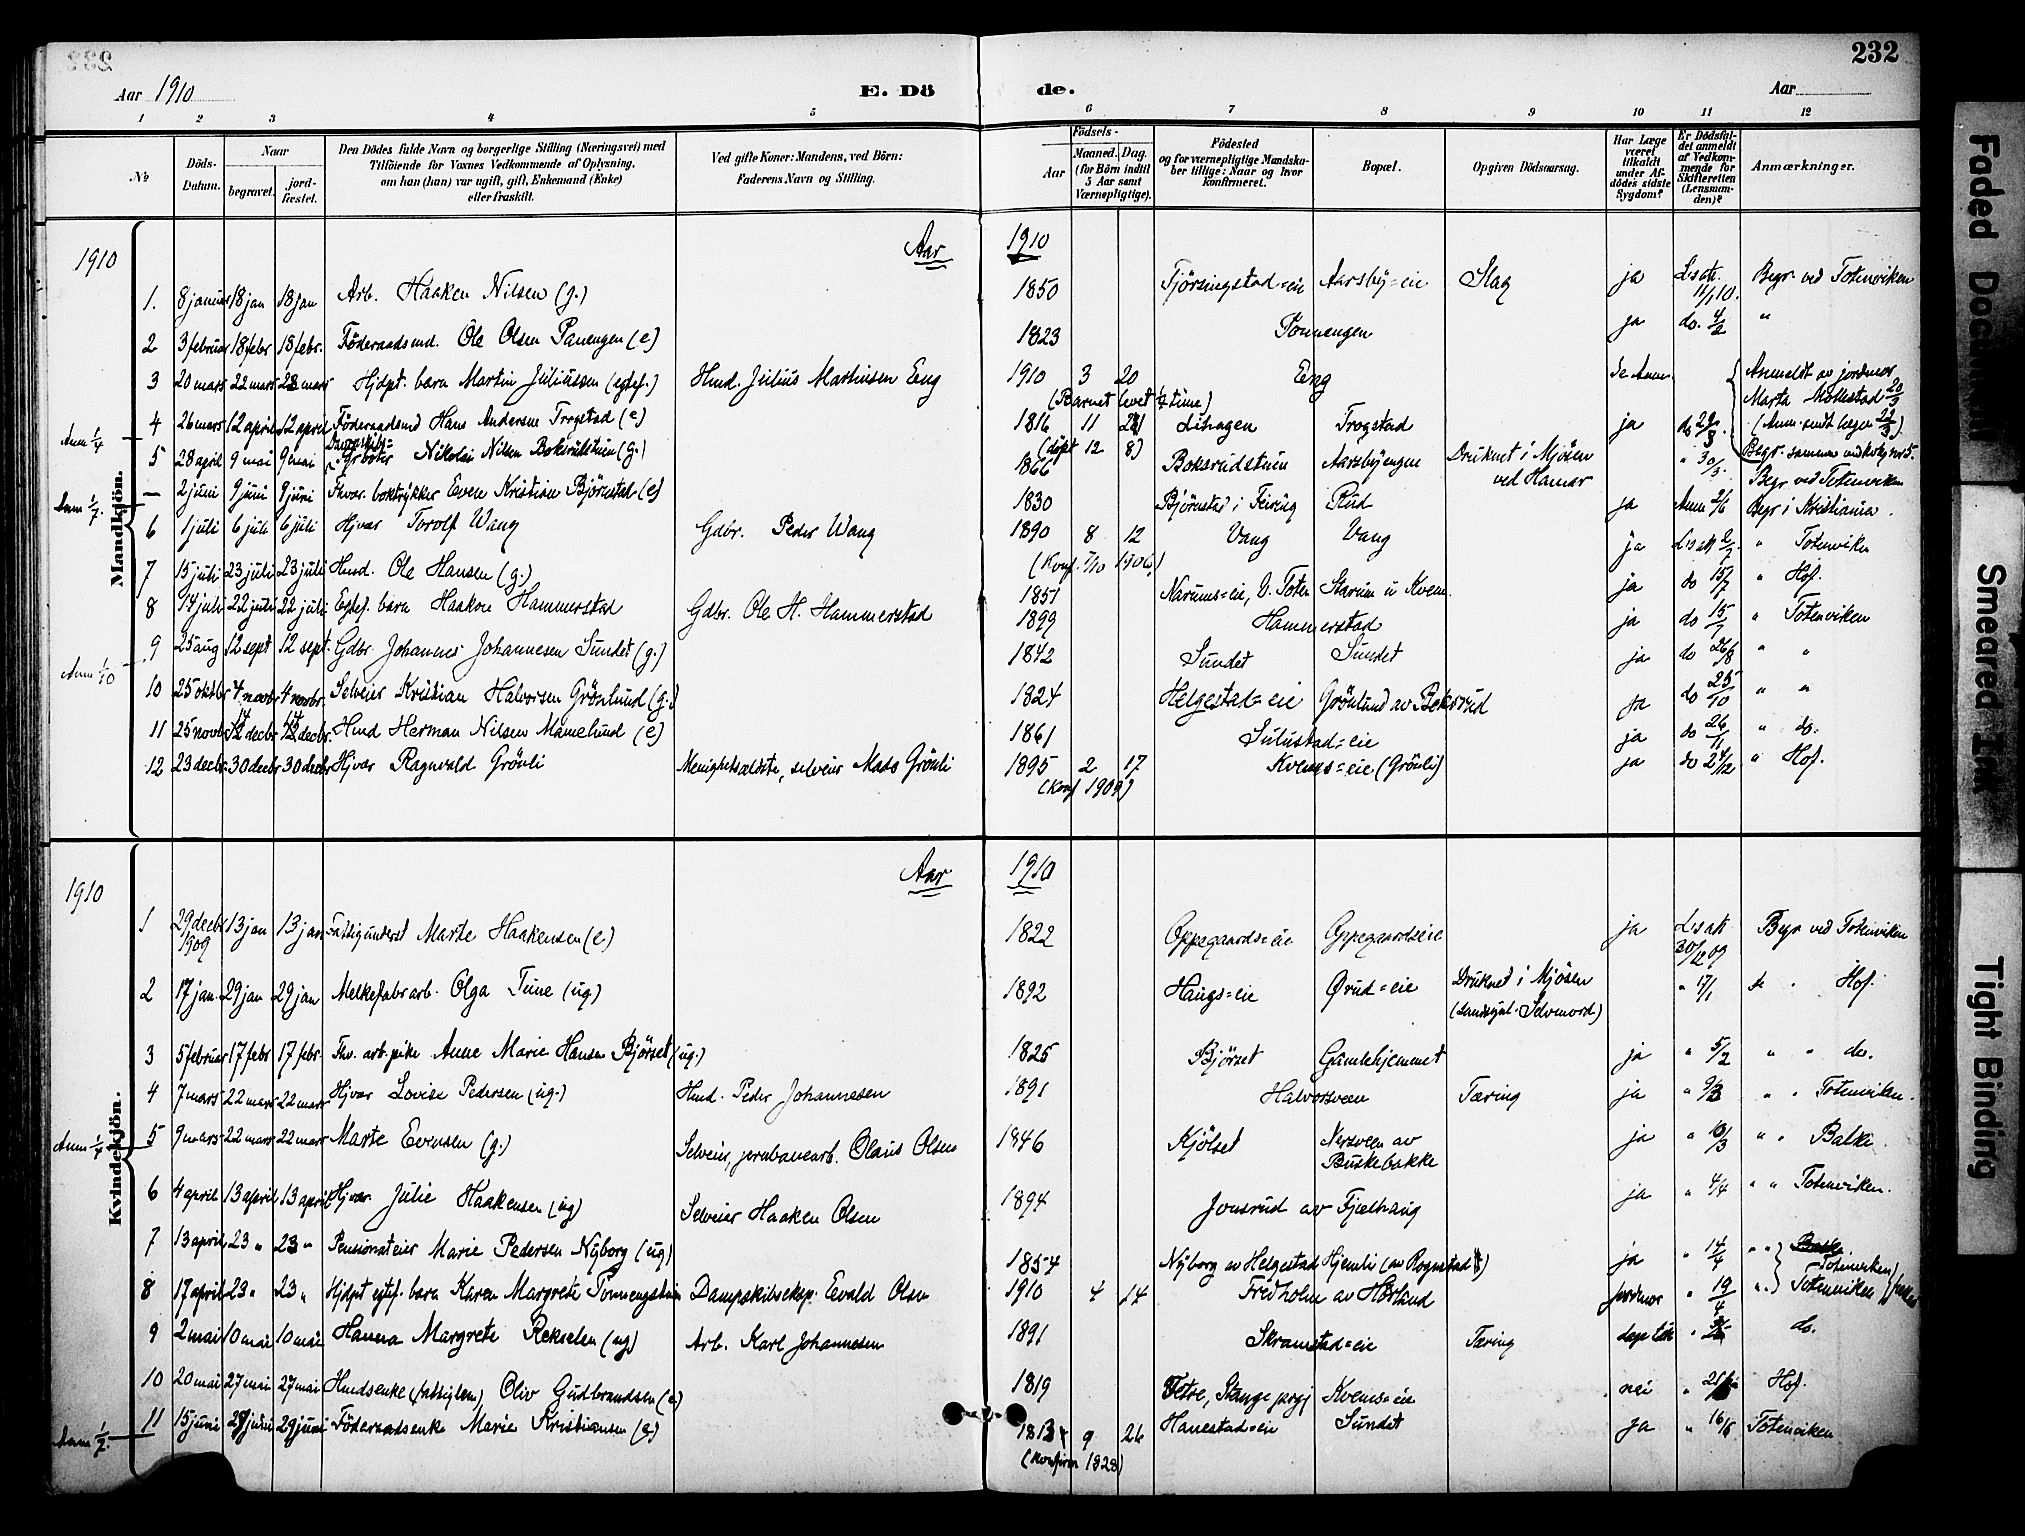 232
Aar 1910 E. Dö de. Aar
1 2 3 4 5 6 7 8 9 10 11 12
№ Döds-Datum. Naar begravet. jord-fæstet. Den Dödes fulde Navn og borgerlige Stilling (Næringsvei) med Tilföiende for Voxnes Vedkommende af Oplysning, om han (hun) var ugift, gift, Enkemand (Enke) eller fraskilt. Ved gifte Koner: Mandens, ved Börn: Faderens Navn og Stilling. Födsels- Aar Maaned. Dag. (for Börn indtil 5 Aar samt Værnepligtige). Födested og for værnepligtige Mandskaber tillige: Naar og hvor konfirmeret. Bopæl. Opgiven Dödsaarsag. Har Læge været tilkaldt under Afdödes sidste Sygdom? Er Dödsfaldet anmeldt af Vedkommende for Skifteretten (Lensmanden)? Anmærkninger.
1910 Aar 1910
Mandkjön.
1. 8 januar 18 jan 18 jan Arb. Haaken Nilsen (g.) 1850 Tjörsingstad=eie Aarsby=eie Slag ja Ls att. 11/1 10. Begr. ved Totenviken
2 3 februar 18 febr 18 febr. Föderaadsmd. Ole Olsen Panengen (e) 1823 Ponnengen ja do. 4/2 "
3 20 mars 22 mars 22 mars Hjdpt. barn Martin Juliussen (egtef.) Hmd. Julius Martinsen Eng 1910 3 20 Eng Se Anm. Anmeldt av jordmor
(Barnet levet ½ time) Marta Mollestad 20/3
4 26 mars 12 april 12 april Föderaadsmd Hans Andersen Trogstad (e) 1816 11 21 Lihagen Trogstad ja do 29/3. (Anm. sendt lægen 22/3)
(döpt 12 8) Begr. sammen
Anm 1/4
5 28 april 9 mai 9 mai Nikolai Nilsen Boksrudstuen (g.) 1866 Boksrudstuen Aarsbyengen Druknet i Mjösen ved Hamar " 30/3 Begr ved Totenviken
Anm 1/7.
— 2 juni 9 juni 9 juni Fhvr. boktrykker Even Kristian Björnstad (e) 1830 Björnstad i Feiring Rud ja Anm 2/6 Begr i Kristiania.
6 1 juli 6 juli 6 juli Hjvær Torolf Wang Gdbr. Peder Wang 1890 8 12 Vang Vang ja Ls att 2/7. " Totenviken
(Konf. 7/10 1906)
7 15 juli 23 juli 23 juli Hmd. Ole Hansen (g.) 1851 Narums=eie, V. Toten Starum u Kvem. ja do 15/7 " Hof.
8 14 juli 22 juli 22 juli Egtef. barn Haakon Hammerstad Gdbr. Ole H. Hammerstad 1899 Hammerstad ja do 15/7 " Totenviken
9 25 aug 12 sept 12 sept. Gdbr Johannes Johannesen Sundet (g.) 1842 Sundet Sundet ja do 26/8 " "
Anm 1/10
10 25 oktbr 4 novbr 4 novbr. Selveier Kristian Halvorsen Grönlund (g.) 1824 Helgestad=eie Grönlund av Boksrud ja do 25/10 " "
11 25 novbr 12 decbr 12 decbr. Hmd Herman Nilsen Mamelund (e) 1861 Sulustad=eie ja do 26/11 " do.
12 23 decbr 30 decbr 30 decbr Hjvær Ragnvald Grönli Menighetsældste, selveier Mads Grönli 1895 2 17 Kvems=eie (Grönli) ja do 24/12 " Hof.
(Konf 1909)
1910 Aar 1910
Kvindekjön.
1 29 decbr 1909 13 jan 13 jan Fattigunderst Marte Haakensen (e) 1822 Oppegaards=eie Oppegaardseie ja Ls att 30/12 09 Begr ved Totenviken
2 17 jan 29 jan 29 jan Melkefabrarb. Olga Tune (ug.) 1892 Haugs=eie Örud=eie Druknet i Mjösen (sandsynl. Selvmord) " 17/1 do " Hof.
3 5 februar 17 febr 17 febr Fhv. arb. pike Anne Marie Hansen Björset (ug.) 1825 Björset Gamlehjemmet ja " 5/2 " " do.
4 7 mars 22 mars 22 mars Hjvær Lovise Pedersen (ug.) Hmd. Peder Johannesen 1891 Halvorsveen Tæring ja " 9/3 " " Totenviken.
Anm 1/4
5 9 mars 22 mars 22 mars Marte Evensen (g.) Selveier, jernbanearb. Olaus Olsen 1846 Kjölset Nersveen av Buskebakke ja " 10/3 " " Balke
6 4 april 13 april 13 april Hjvær. Julie Haakensen (ug) Selveier Haaken Olsen 1894 Jonsrud av Fjælhaug ja " 4/4 " " Totenviken.
7 13 april 23 " 23 " Pensionateier Marie Pedersen Nyborg (ug) 1854 Nyborg av Helgestad Hjemli (av Rognstad) ja " 14/4 " " Totenviken
8 17 april 23 " 23 " Hjdpt egtef. barn Karen Margrete Ponnengstuen Dampskibseksp. Evald Olsen 1910 4 14 Fredholm av Horland jordmor " 19/4 " " Totenviken
9 2 mai 10 mai 10 mai Hanna Margrete Rekselen (ug) Arb. Karl Johannesen 1891 Skramstad=eie Tæring læge tilk do.
10 20 mai 27 mai 27 mai Hmdsenke (fattiglem) Oliv Gudbrandsen (e) 1819 Tetre, Stange prgj Kvems=eie nei Hof.
11 15 juni 29 juni 29 juni Föderaadsenke Marie Kristiansen (e) 1813 9 26 Hanestad=eie Sundet ja " 16/6 Totenviken
Anm 1/7.
(Konfirm 1828)
Faded Document
Smeared Ink
Tight Binding